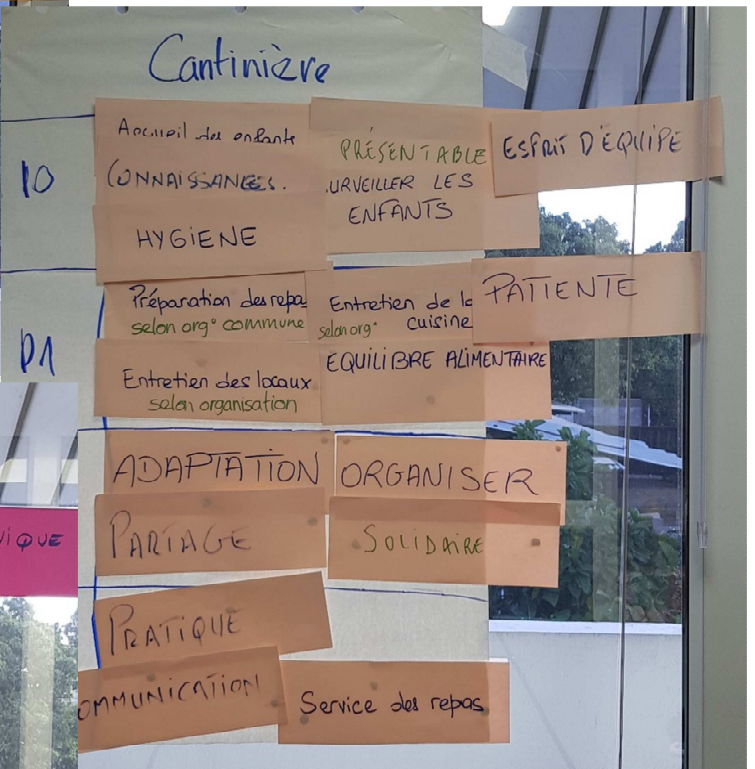 Cantinière
10
Accueil des enfants
CONNAISSANCES.
HYGIENE
PRÉSENTABLE
URVEILLER LES
ENFANTS
ESPRIT D'ÉQUIPE
Préparation des repa
selon org° commune
Entretien de la
selon org° cuisine
PATIENTE
Entretien des locaux
selon organisation
EQUILIBRE ALIMENTAIRE
ADAPTATION
ORGANISER
PARTAGE
SOLIDAIRE
IQUE
PRATIQUE
OMMUNICATION
Service des repas